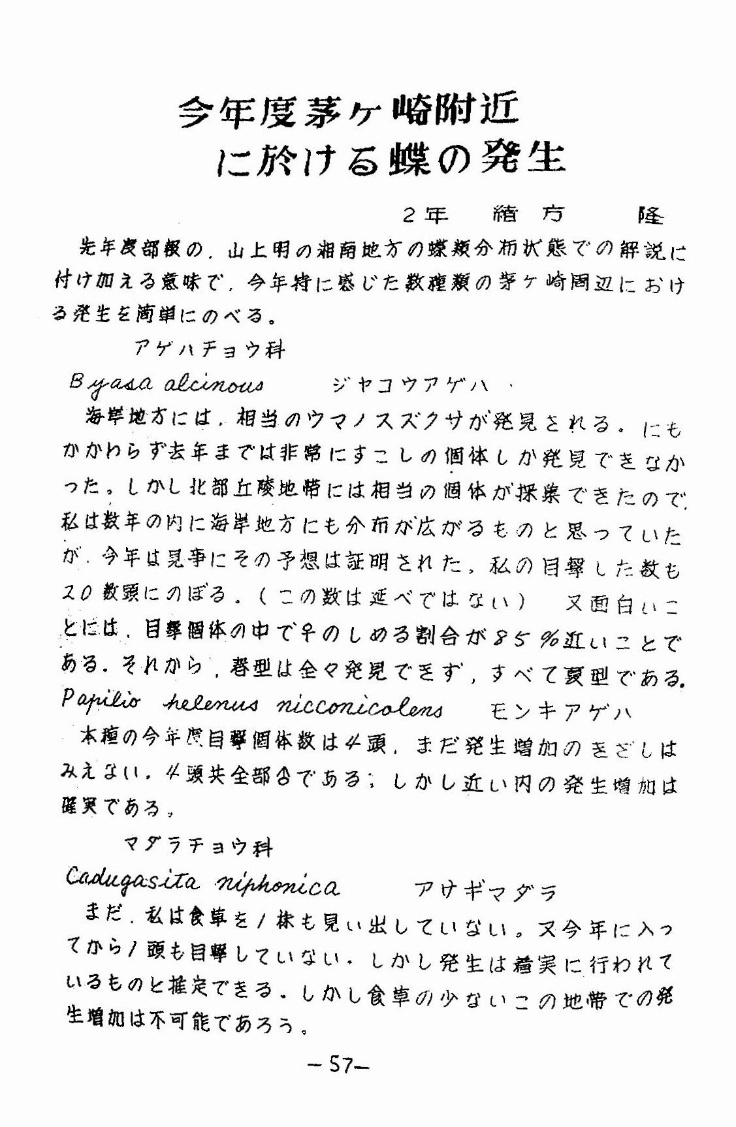 今年度茅ヶ崎附近
に於ける蝶の発生
2年　緒方　隆
先年度部報の、山上明の湘南地方の蝶類分布状態での解説に
付け加える意味で、今年特に感じた数種類の茅ヶ崎周辺におけ
る発生を簡単にのべる。
アゲハチョウ科
Byasa alcinous　ジャコウアゲハ
海岸地方には、相当のウマノスズクサが発見される。にも
かかわらず去年までは非常にすこしの個体しか発見できなか
った。しかし北部丘陵地帯には相当の個体が採集できたので、
私は数年の内に海岸地方にも分布が広がるものと思っていた
が、今年は見事にその予想は証明された。私の目撃した数も
20数頭にのぼる。(この数は延べではない)　又面白いこ
とには、目撃個体の中で♀のしめる割合が85%近いことで
ある。それから、春型は全々発見できず、すべて夏型である。
Papilio helenus nicconicolens　モンキアゲハ
本種の今年度目撃個体数は4頭、まだ発生増加のきざしは
みえない。4頭共全部♂である；しかし近い内の発生増加は
確実である。
マダラチョウ科
Cadugasita niphonica　アサギマダラ
まだ、私は食草を1株も見い出していない。又今年に入っ
てから1頭も目撃していない。しかし発生は着実に行われて
いるものと推定できる。しかし食草の少ないこの地帯での発
生増加は不可能であろう。
-57-